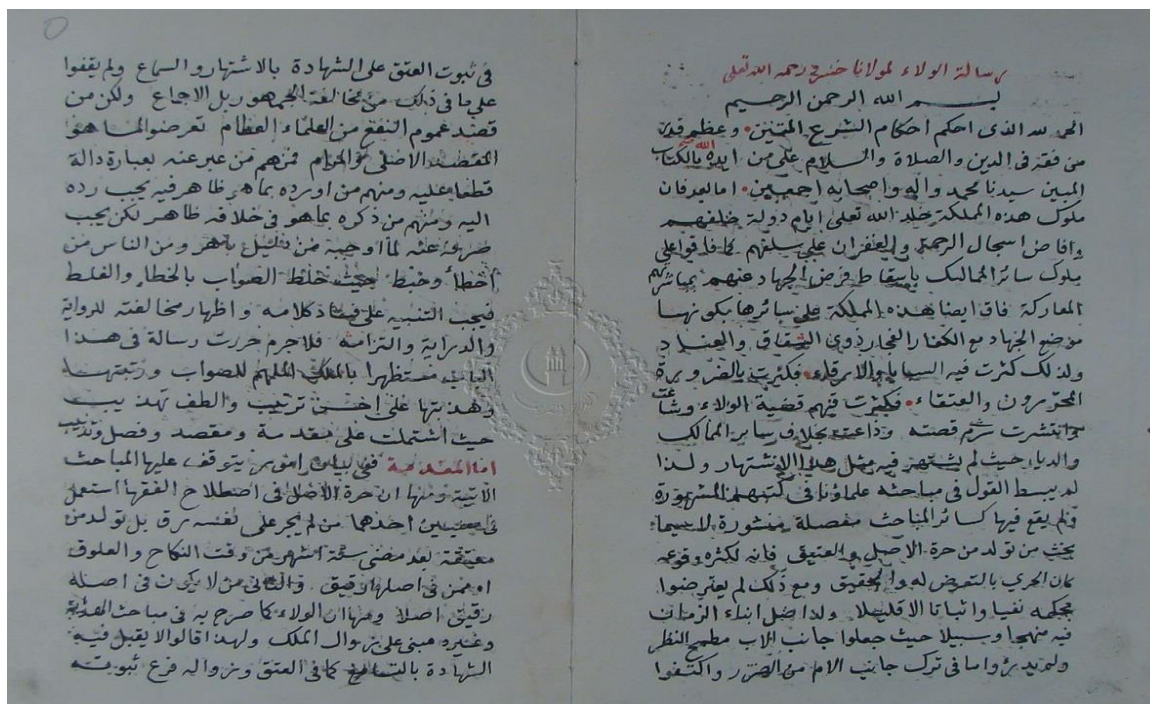 رسالة الولاء لمولانا خسرو رحمه الله تعلى
بسم الله الرحمن الرحيم
الحمد لله الذى احكم احكام الشرع المتين وعظم قدر
من فقه فى الدين والصلاة والسلام على من ايده الله بالكتاب
المبين سيدنا محمد واله واصحابه اجمعين اما بعد فان
ملوك هذه المملكة خلد الله تعلى ايام دولة خلفهم
وافاض اسجال الرحمة والغفران على سلفهم كما فاقوا على
ملوك سائر الممالك باسقاط فرض الجهاد عنهم بمباشرتهم
المعاركة فاق ايضا هذه المملكة على سائرها بكونها
موضع الجهاد مع الكفار الفجار ذوى الشقاق والعناد
ولذلك كثرت فيه السبايا والارقاء فكثرت بالضرورة
المحررون والعتقاء فكثرت فيهم قضية الولاء وشاعت
وانتشرت قصته وذاعت بخلاف سائر الممالك
والديار حيث لم يشتهر فيه مثل هذا الاشتهار ولذا
لم يبسط القول فى مباحثه علماؤنا فى كتبهم المشهورة
ولم يقع فيها كسائر المباحث مفصلة منشورة لاسيما
بحث من تولد من حرة الاصل والعتيق فانه لكثرة وقوعه
كان الحرى بالتعرض له والتحقيق ومع ذلك لم يعترضوا
بحكمه نفيا واثباتا الا قليلا ولذا ضل ابناء الزمان
فيه منهجا وسبيلا حيث جعلوا جانب الاب مطمح النظر
ولم يدروا ما فى ترك جانب الام من الضرر واكتفوا
فى ثبوت العتق على الشهادة بالاشتهار والسماع ولم يقفوا
على ما فى ذلك من مخالفة الجمهور بل الاجماع ولكن من
قصد عموم النفع من العلماء العظام تعرضوا لما هو
المقصد الاصلى والمرام فمنهم من عبر عنه بعبارة دالة
قطعا عليه ومنهم من اورده بما هو ظاهر فيه يجب رده
اليه ومنهم من ذكره بما هو فى خلافه ظاهر لكن يجب
صرفه عنه لما اوجبه من دليل باهر ومن الناس من
أخطأ وخبط حيث خلط الصواب بالخطاء والغلط
فيجب التنبيه على فساد كلامه واظهار مخالفته للرواية
والدراية والتزامه فلاجرم حررت رسالة فى هذا
الباب مستظهرا بالملك الملهم للصواب ورتبتها
وهذبتها على احسن ترتيب والطف تهذيب
حيث اشتملت على مقدمة ومقصد وفصل وتذنيب
اما المقدمة ففى بيان امور يتوقف عليها المباحث
الاتية ومنها ان حرة الاصل فى اصطلاح الفقها استعمل
فى معنيين احدهما من لم يجر على نفسه رق بل تولد من
معتقة بعد مضى ستة اشهر من وقت النكاح والعلوق
او ممن فى اصلها رقيق والثانى من لا يكون فى اصله
رقيق اصلا ومنها ان الولاء كما صرح به فى مباحث الهداية
وغيره مبنى على زوال الملك ولهذا قالوا لا يقبل فيه
الشهادة بالتسامع كما فى العتق وزواله فرع ثبوته